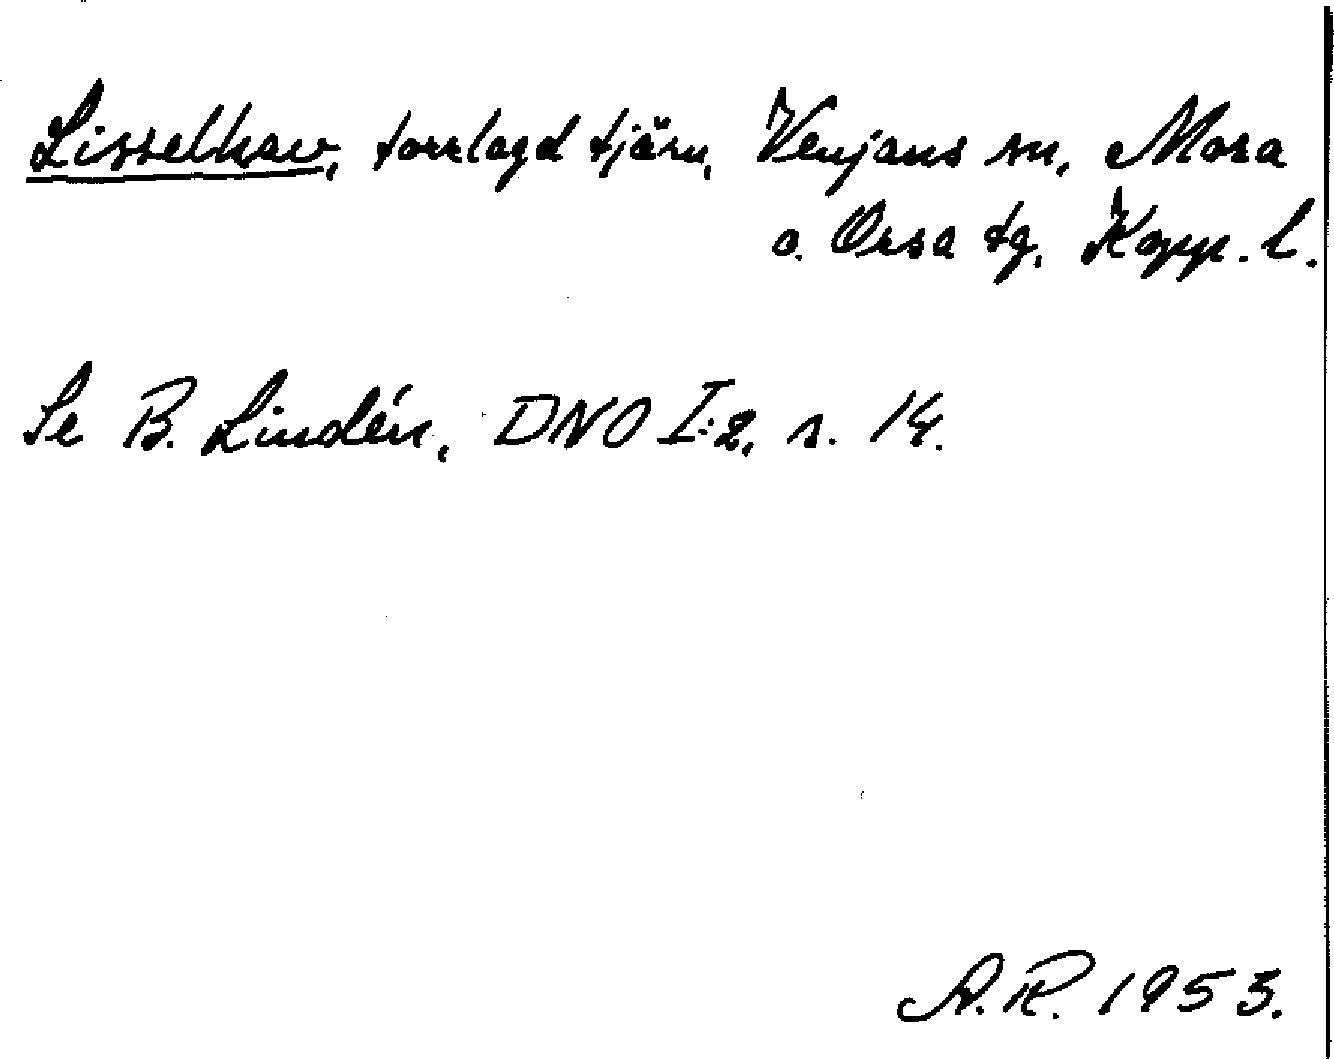 Lisselhav, torrlagd tjärn, Venjans sn, Mora
o. Orsa tg, Kopp. l.
Se B. Lindén, DNO I:2, s. 14.
A.R. 1953.